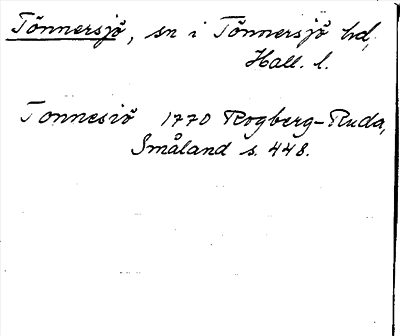 Tönnersjö, sn i Tönnersjö hd,
Hall. l.
Tonnesiö 1770 Rogberg-Ruda,
Småland s. 448.